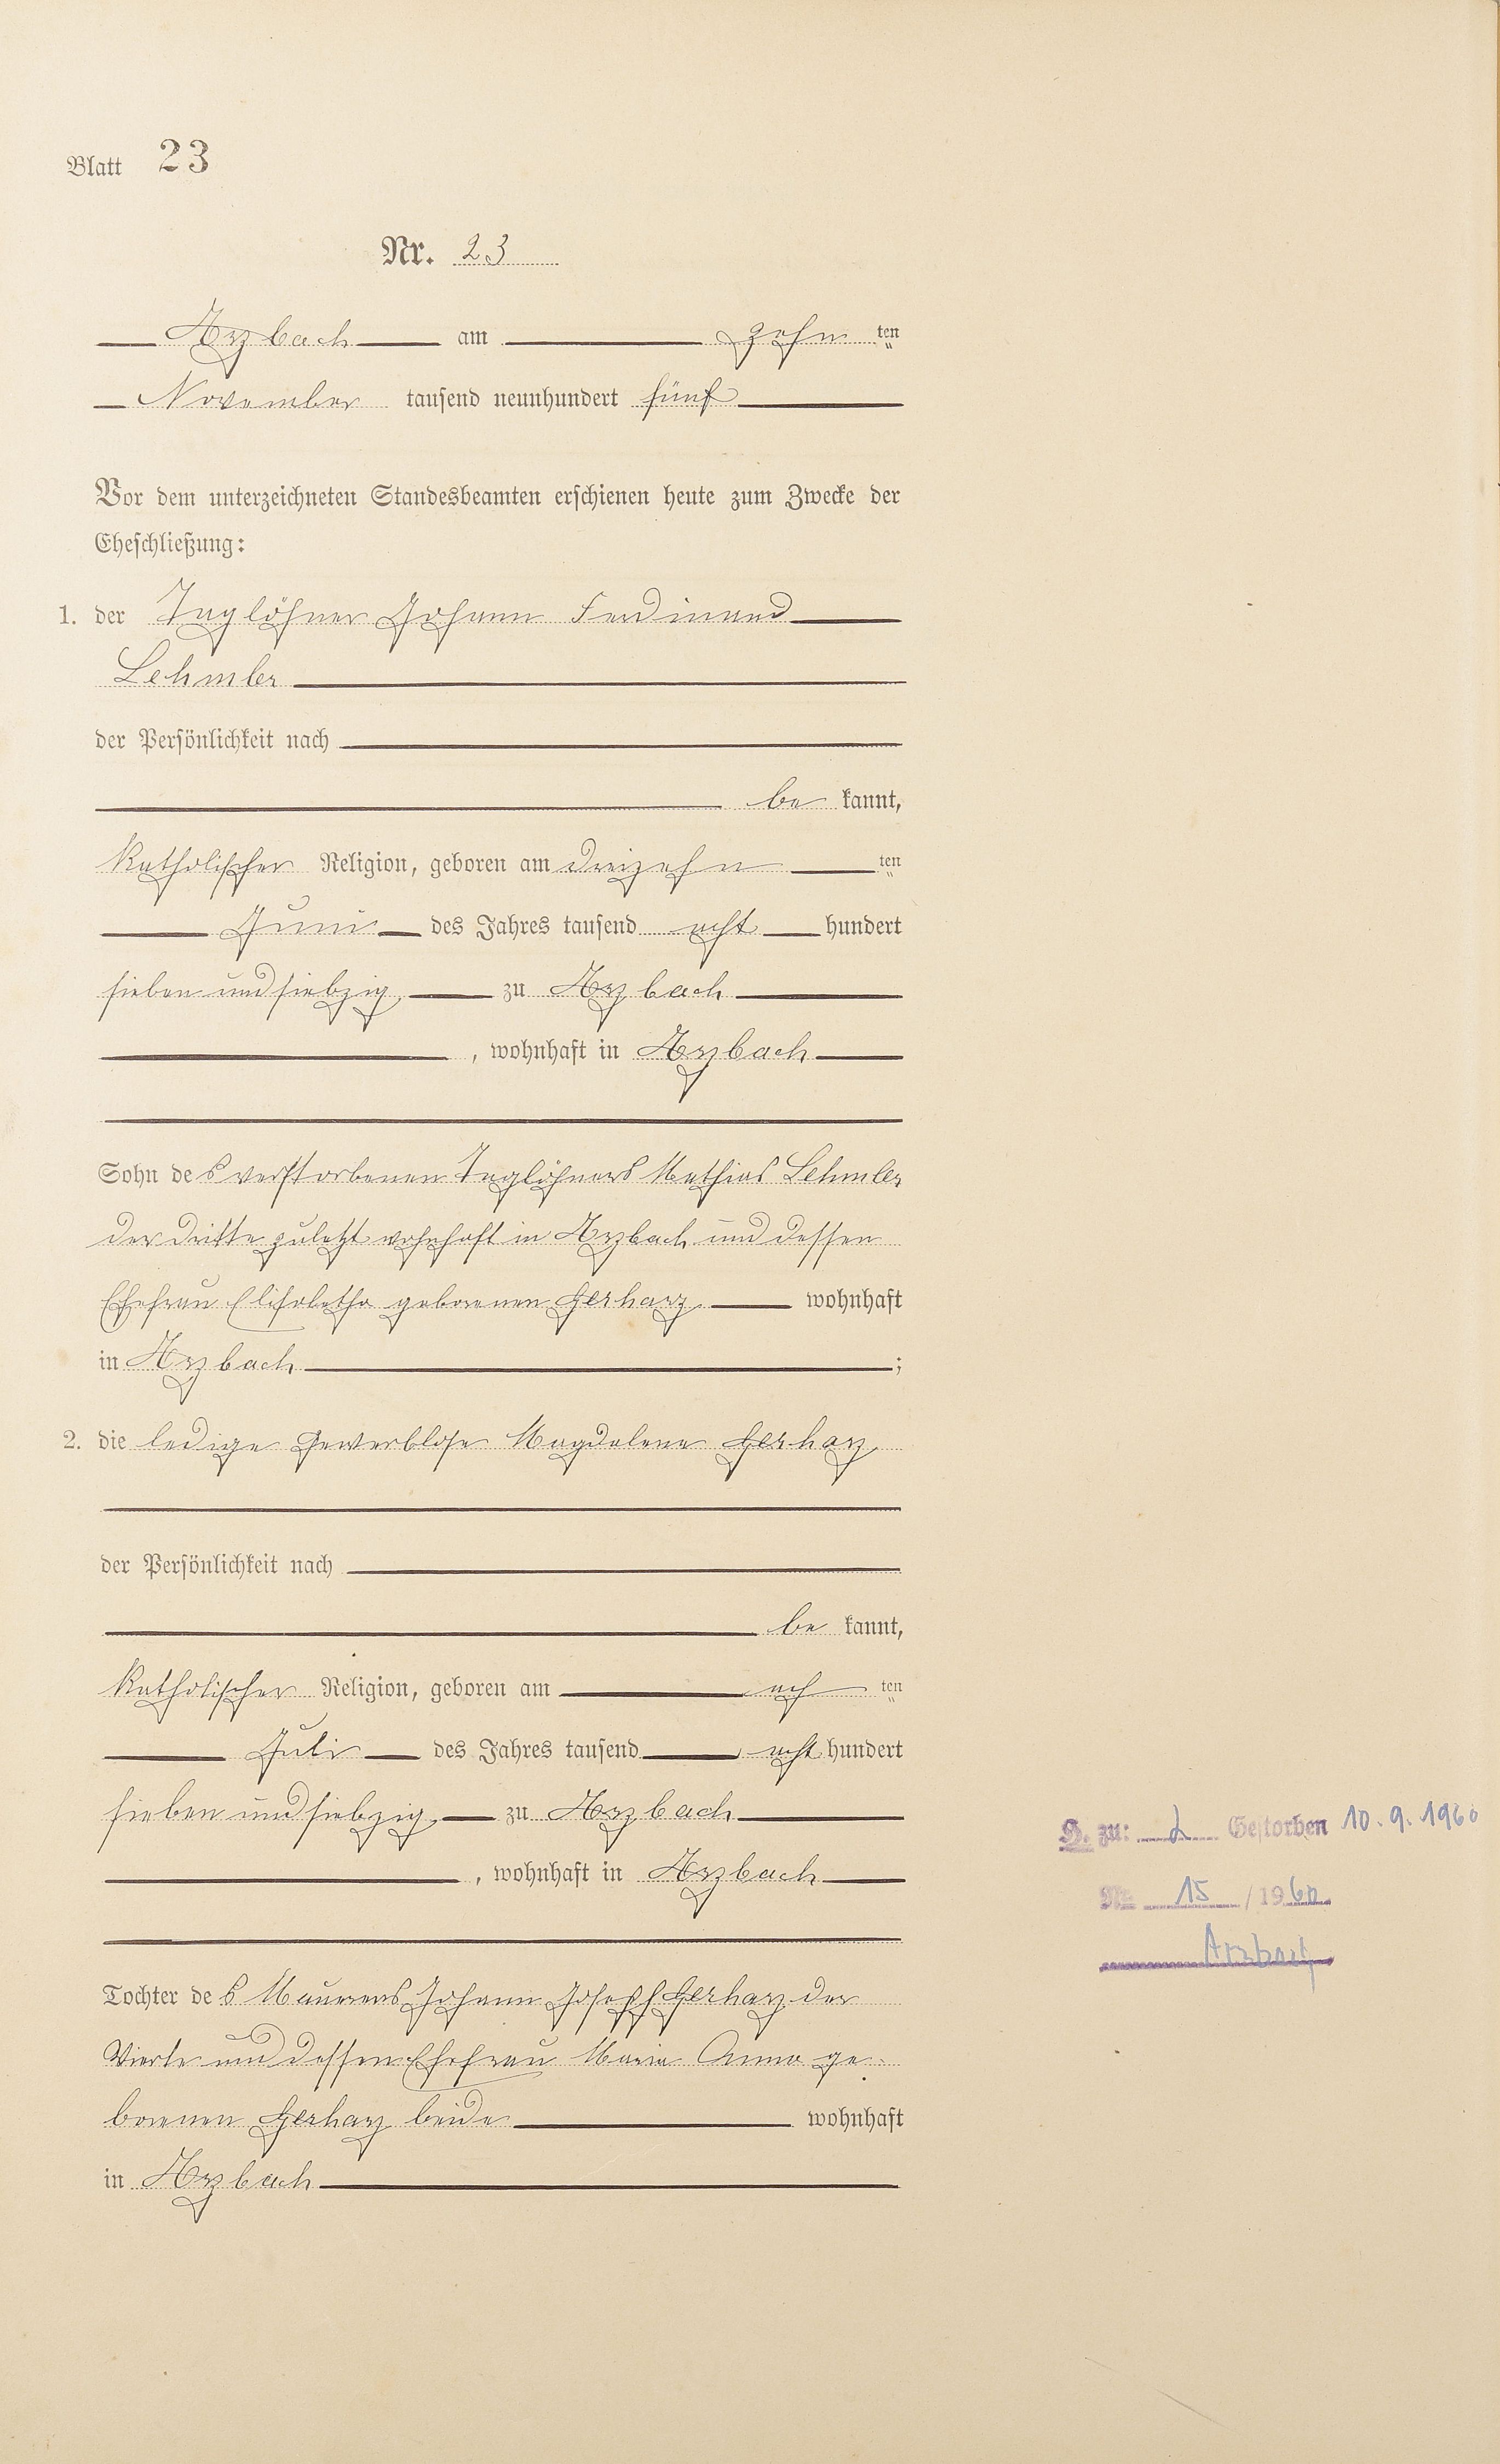 Blatt 23
Nr. 23
Arzbach am zehn ten
November tausend neunhundert fünf
Vor dem unterzeichneten Standesbeamten erschienen heute zum Zwecke der
Eheschließung:
1. der Taglöhner Johann Ferdinand
Lehmler
der Persönlichkeit nach
be kannt,
katholischer Religion, geboren am dreizehn ten
Juni des Jahres tausend acht hundert
sieben und siebzig zu Arzbach
, wohnhaft in Arzbach
Sohn des verstorbenen Taglöhners Mathias Lehmler
der Dritte zuletzt wohnhaft in Arzbach und dessen
Ehefrau Elisabetha geborenen Gerharz wohnhaft
in Arzbach ;
2. die ledige Gewerblose Magdalena Gerharz
der Persönlichkeit nach
be kannt,
katholischer Religion, geboren am ach ten
Juli des Jahres tausend acht hundert
sieben und siebzig zu Arzbach
, wohnhaft in Arzbach
Tochter des Maurers Johann Joseph Gerharz der
Vierte und dessen Ehefrau Maria Anna ge-
borenen Gerharz beide wohnhaft
in Arzbach
H. zu: 2 Gestorben 10.9.1960
Nr. 15 / 1960
Arzbach